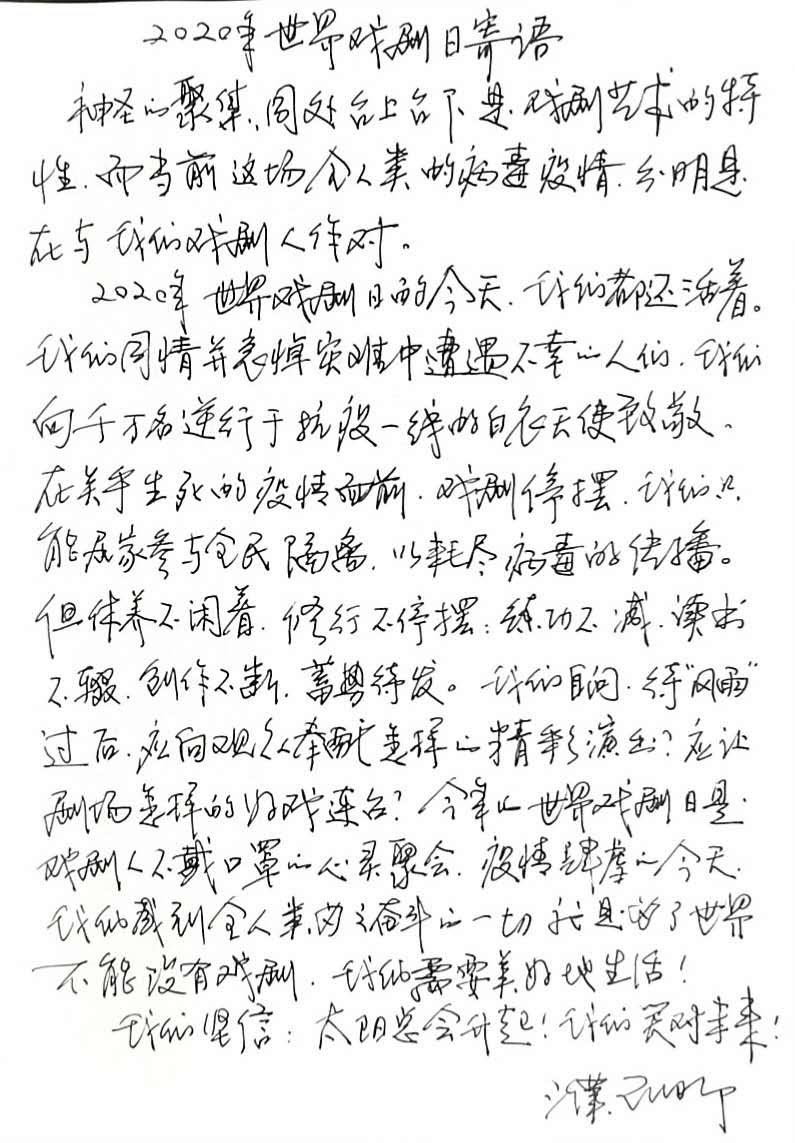 2020年世界戏剧日寄语
神圣的聚集，同处台上台下是戏剧艺术的特
性，而当前这场全人类的病毒疫情，分明是
在与我们戏剧人作对。
2020年世界戏剧日的今天，我们都还活着。
我们同情并悲悼灾难中遭遇不幸的人们，我们
向千万名逆行于抗疫一线的白衣天使致敬。
在关乎生死的疫情面前，戏剧停摆，我们只
能居家参与全民隔离，以耗尽病毒的传播。
但休养不闲着，修行不停摆：练功不减，读书
不辍，创作不断，蓄势待发。我们自问，待“风雨”
过后，应向观众奉献怎样的精彩演出？应让
剧场怎样的好戏连台？今年的世界戏剧日是
戏剧人不戴口罩的心灵聚会，疫情肆虐的今天，
我们感到全人类为之奋斗的一切就是为了世界
不能没有戏剧，我们需要美好地生活！
我们坚信：太阳总会升起！我们笑对未来！
濮存昕